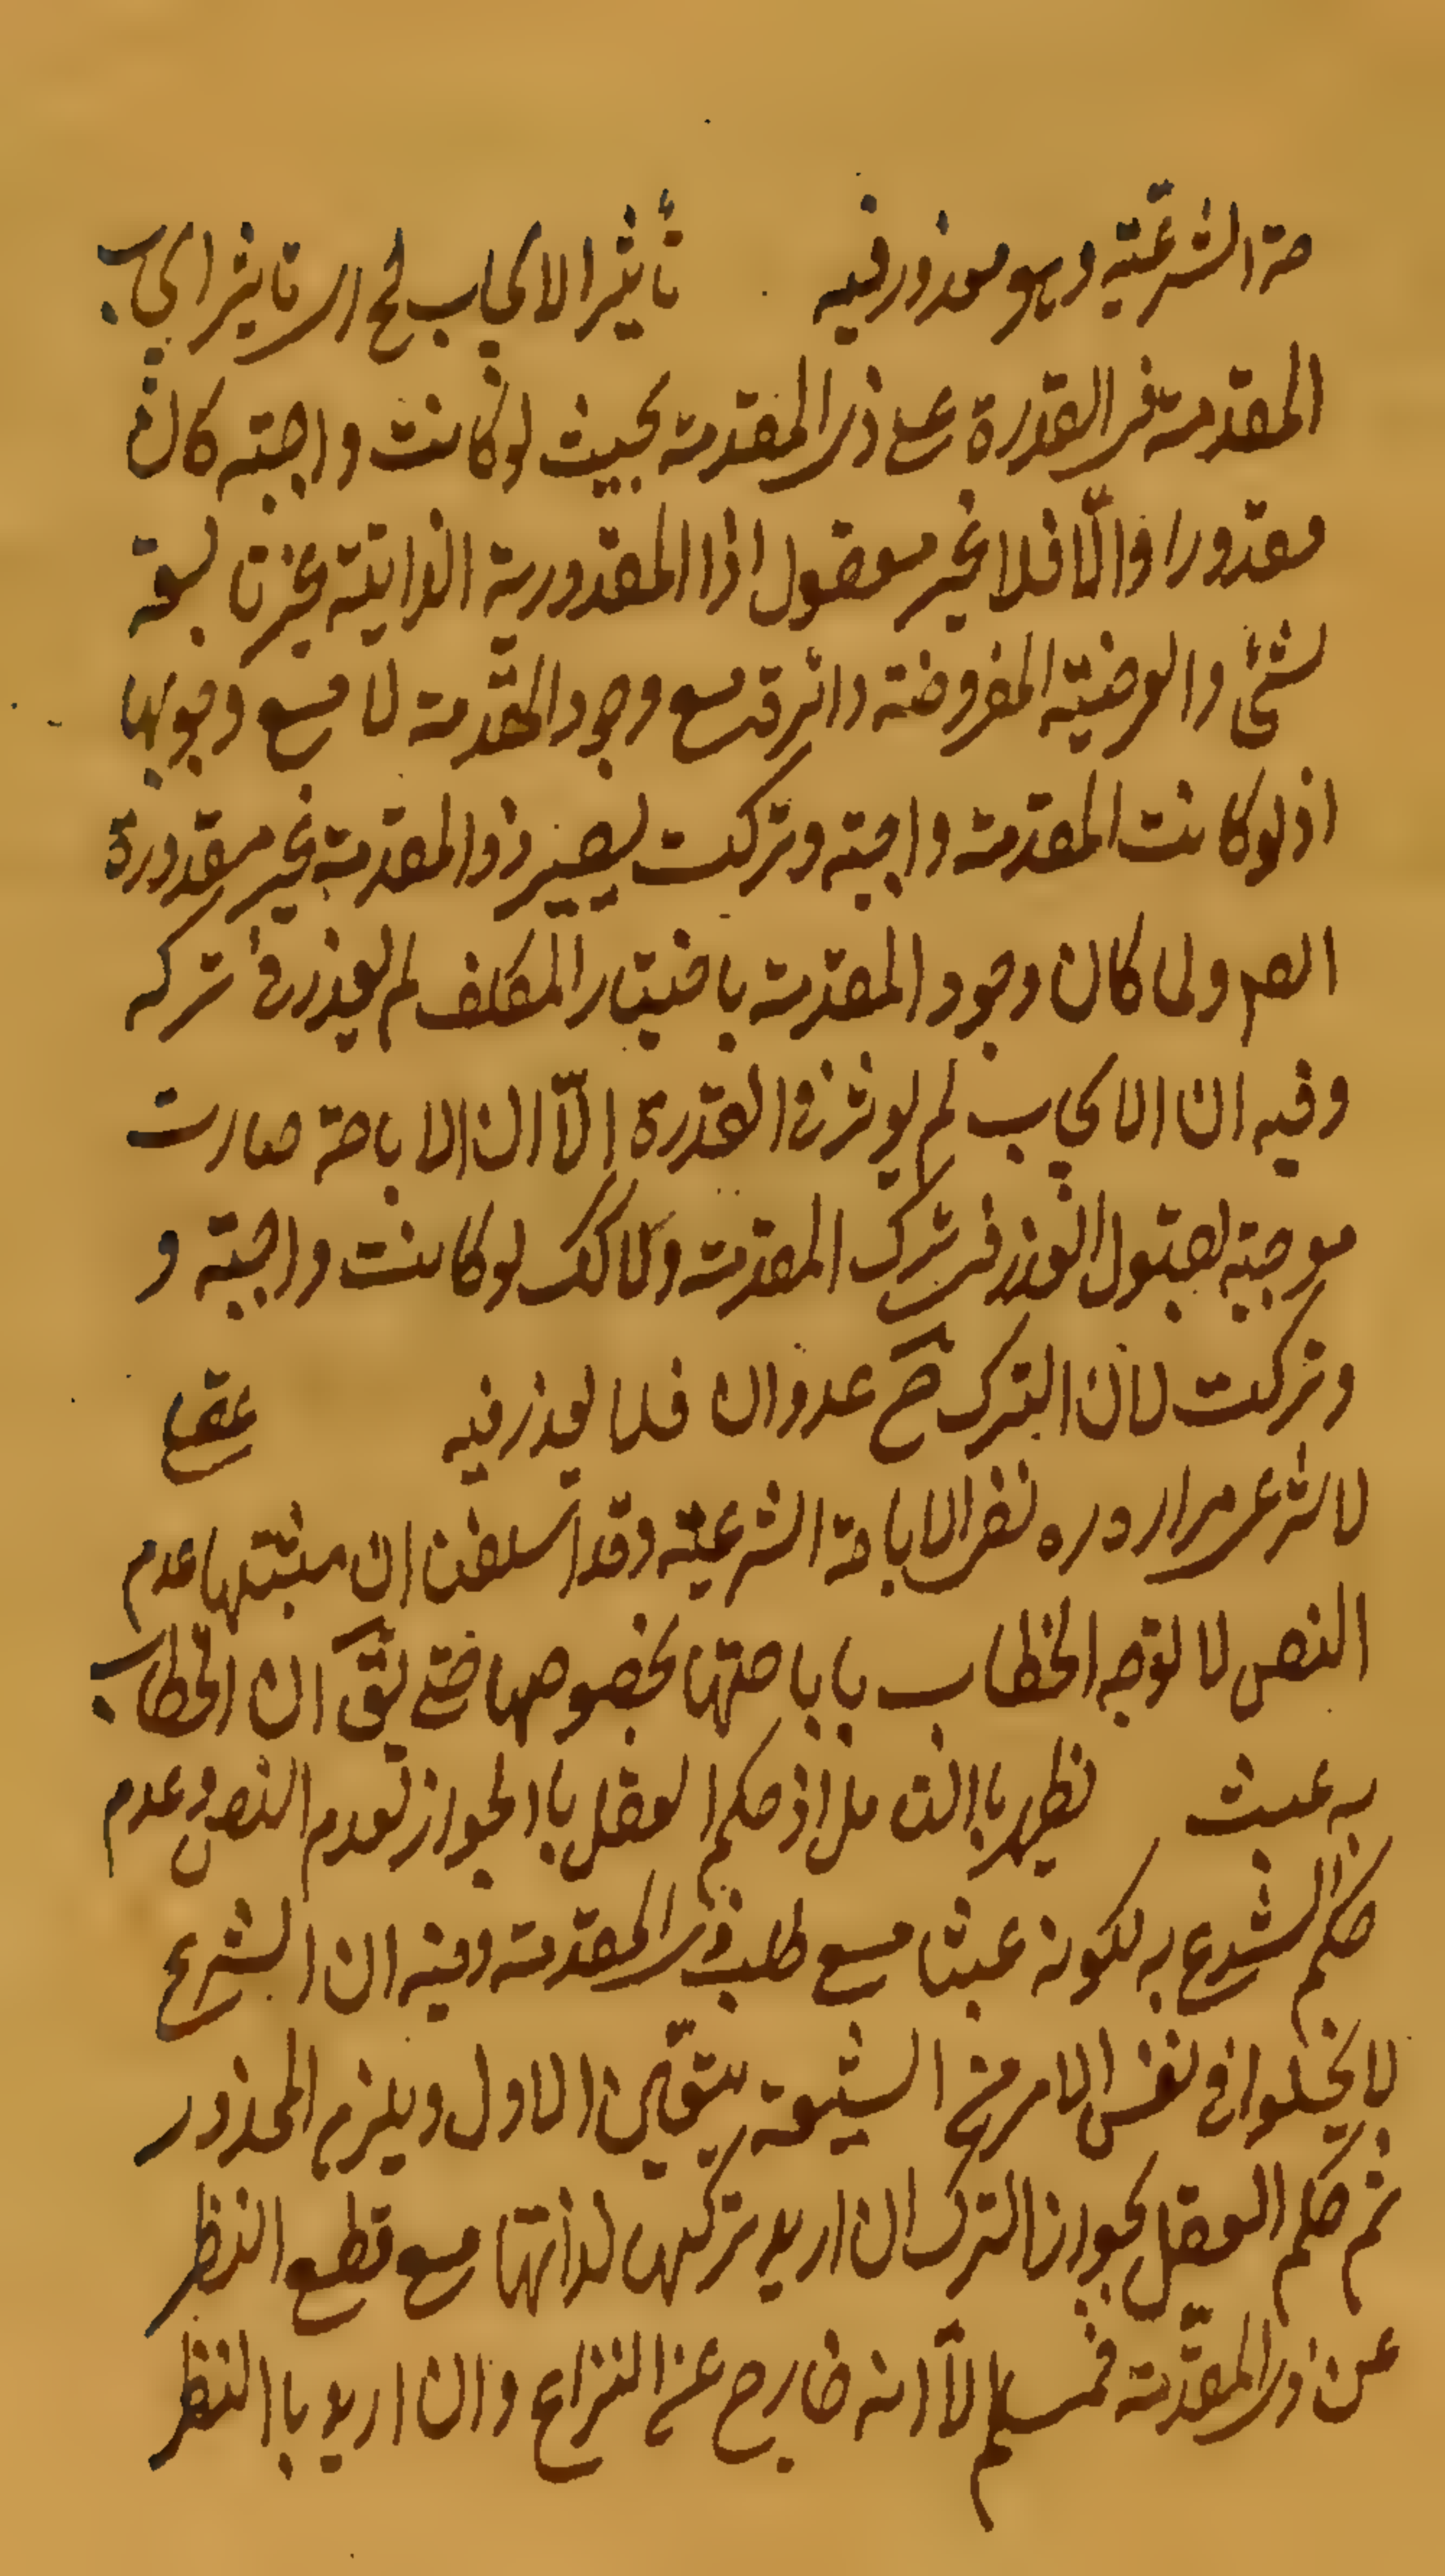 حة الشرعية وهو معذور فيه تأثير الايجاب لح اي تاثير ايجاب
المقدمة في القدرة على ذي المقدمة بحيث لو كانت واجبة كان
مقدورا والّا فلا غير معقول اذا المقدورية الذاتية غير تابعة
لشئ والعرضية المفروضة دائرة مع وجود المقدمة لا مع وجوبها
اذ لو كانت المقدمة واجبة وتركت يصير ذو المقدمة غير مقدورة
ولما كان وجود المقدمة باختيار المكلف لم يعذر في تركه
وفيه ان الايجاب لم يوثر في القدرة الّا ان الاباحة صارت
موجبة لقبول العذر في ترك المقدمة ولا كك لو كانت واجبة و
وتركت لان الترك ح عدوان فلا يعذر فيه عقلي
لا شرعي مراده نفي الاباحة الشرعية وقد اسلفن ان مثبتها عدم
النص لا توجه الخطاب باباحتها بخصوصها حتى يق ان الخطاب
به عبث نظهر باالتامل اذ حكم العقل باالجواز لعدم النص وعدم
حكم الشرع به لكونه عبثا مع طلب ذي المقدمة وفيه ان الشرع
لا يخلوا في نفس الامر من الشيعة يتعين الاول ويلزم المحذور
ثم حكم العقل بجواز الترك ان اريد تركها لذاتها مع قطع النظر
عن ذي المقدمة فمسلم لّا انه خارج عن النزاع وان اريد باالنظر